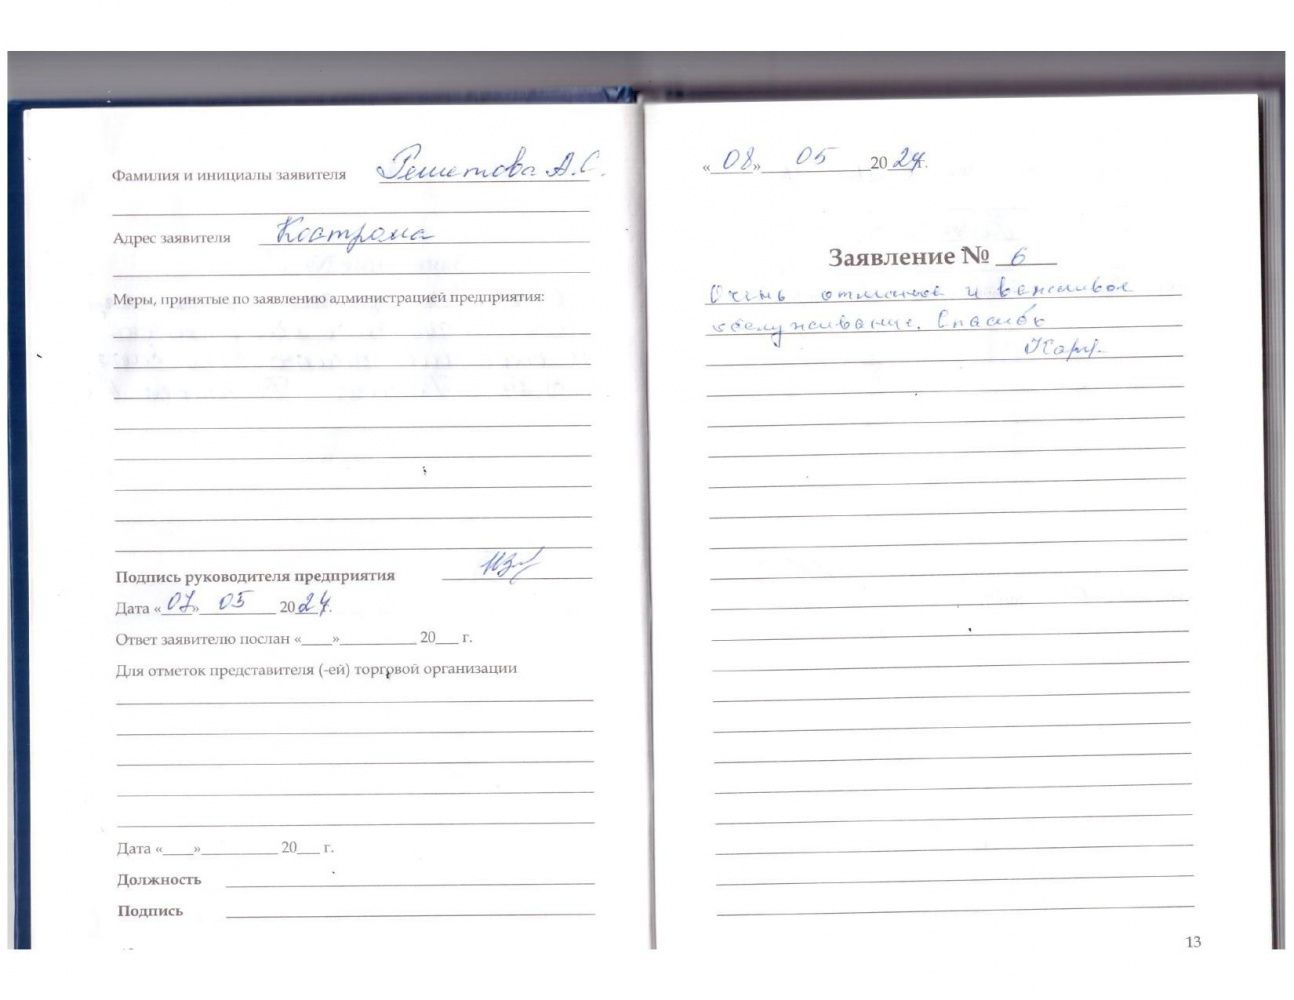 Фамилия и инициалы заявителя Решетова А.С.
Адрес заявителя Кострома
Меры, принятые по заявлению администрацией предприятия:
Подпись руководителя предприятия
Дата «07» 05 2024г.
Ответ заявителю послан «____»__________ 20___ г.
Для отметок представителя (-ей) торговой организации
Дата «____»__________ 20___ г.
Должность
Подпись
«08» 05 2024г.
Заявление № 6
Очень отличное и вежливое
обслуживание. Спасибо
13